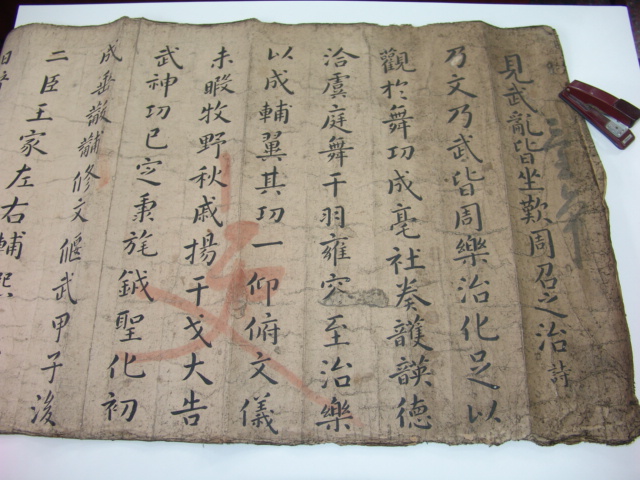 見武亂皆坐歎周召之治詩
乃文乃武皆周樂治化足以
觀於舞功成亳社奏頀韺德
洽虞庭舞干羽雍容至治樂
以成輔翼其功一仰俯文儀
未暇牧野秋戚揚干戈大告
武神功已定秉旄鉞聖化初
成垂黻黼修文偃武甲子後
二臣王家左右輔